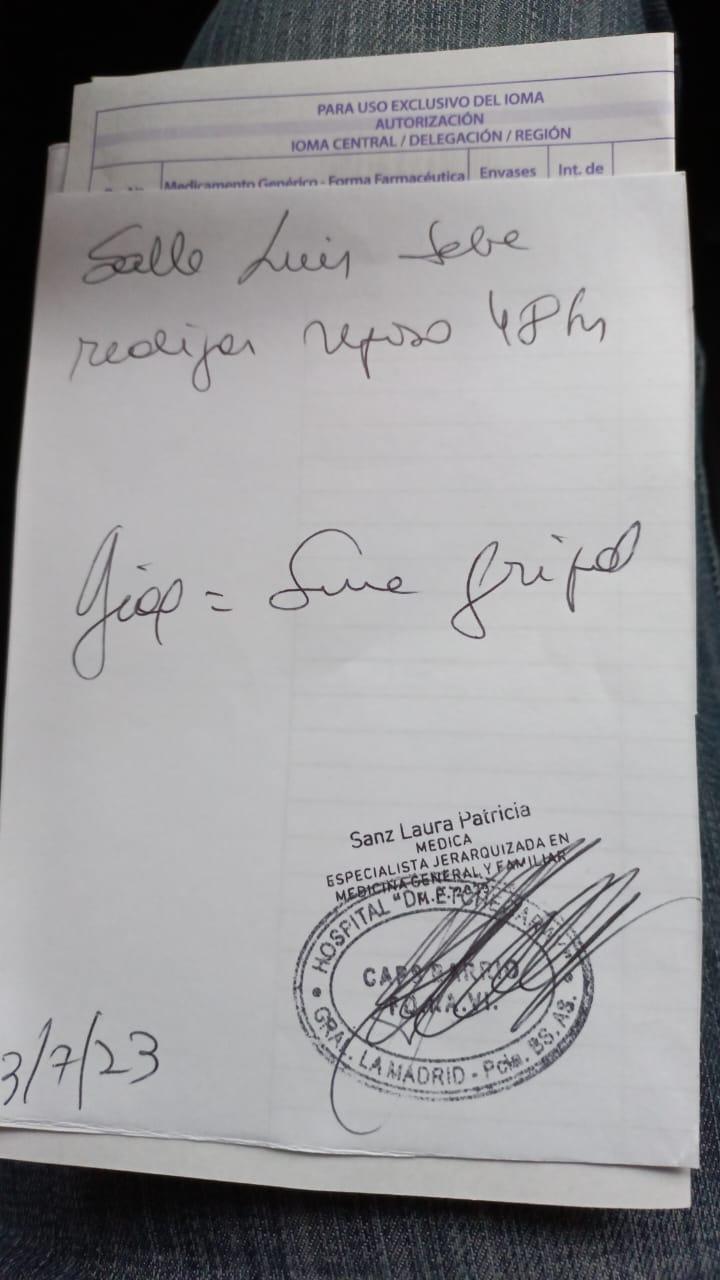 PARA USO EXCLUSIVO DEL IOMA
AUTORIZACIÓN
IOMA CENTRAL / DELEGACIÓN / REGIÓN
Medicamento Genérico - Forma Farmacéutica Envases Int. de
Salle Luis debe
realizar reposo 48 hs
= Sme gripal
Sanz Laura Patricia
MEDICA
ESPECIALISTA JERARQUIZADA EN
MEDICINA GENERAL Y FAMILIAR
HOSPITAL
CAPS BARRIO
GRAL. LA MADRID - Pcia. BS. AS.
3/7/23